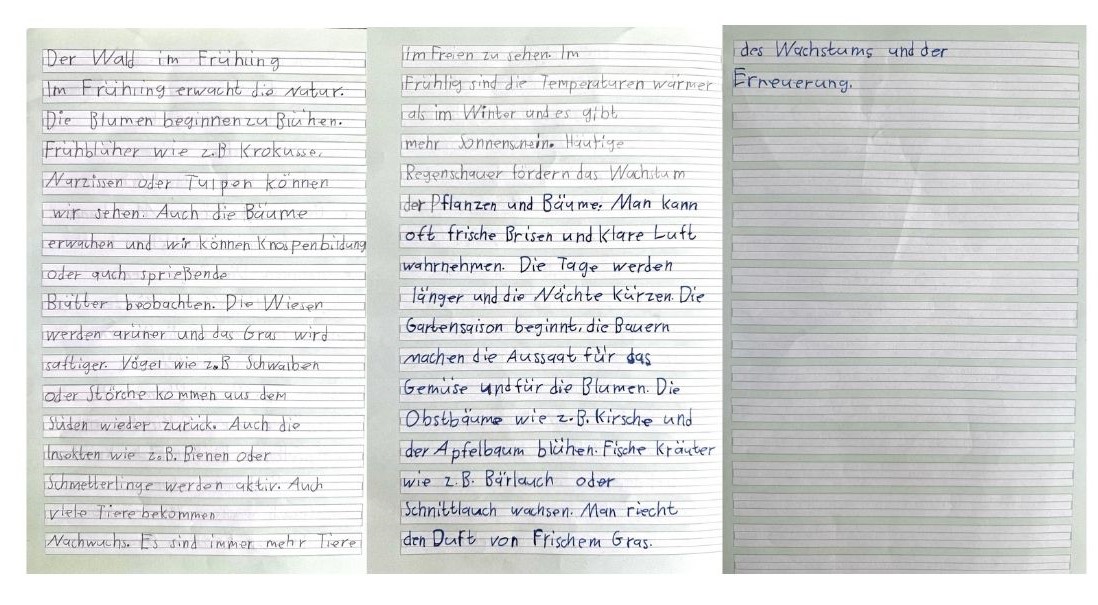 Der Wald im Frühling
Im Frühling erwacht die Natur.
Die Blumen beginnen zu Blühen.
Frühblüher wie z.B Krokusse,
Narzissen oder Tulpen können
wir sehen. Auch die Bäume
erwachen und wir können Knospenbildung
oder auch sprießende
Blätter beobachten. Die Wiesen
werden grüner und das Gras wird
saftiger. Vögel wie z.B Schwalben
oder Störche kommen aus dem
Süden wieder zurück. Auch die
Insekten wie z.B. Bienen oder
Schmetterlinge werden aktiv. Auch
viele Tiere bekommen
Nachwuchs. Es sind immer mehr Tiere
Im Freien zu sehen. Im
Frühlig sind die Temperaturen wärmer
als im Winter und es gibt
mehr Sonnenschein. Häufige
Regenschauer fördern das Wachstum
der Pflanzen und Bäume. Man kann
oft frische Brisen und Klare Luft
wahrnehmen. Die Tage werden
länger und die Nächte kürzen. Die
Gartensaison beginnt, die Bauern
machen die Aussaat für das
Gemüse und für die Blumen. Die
Obstbäume wie z.B. Kirsche und
der Apfelbaum blühen. Fische Kräuter
wie z.B. Bärlauch oder
Schnittlauch wachsen. Man riecht
den Duft von Frischem Gras.
des Wachstums und der
Erneuerung.